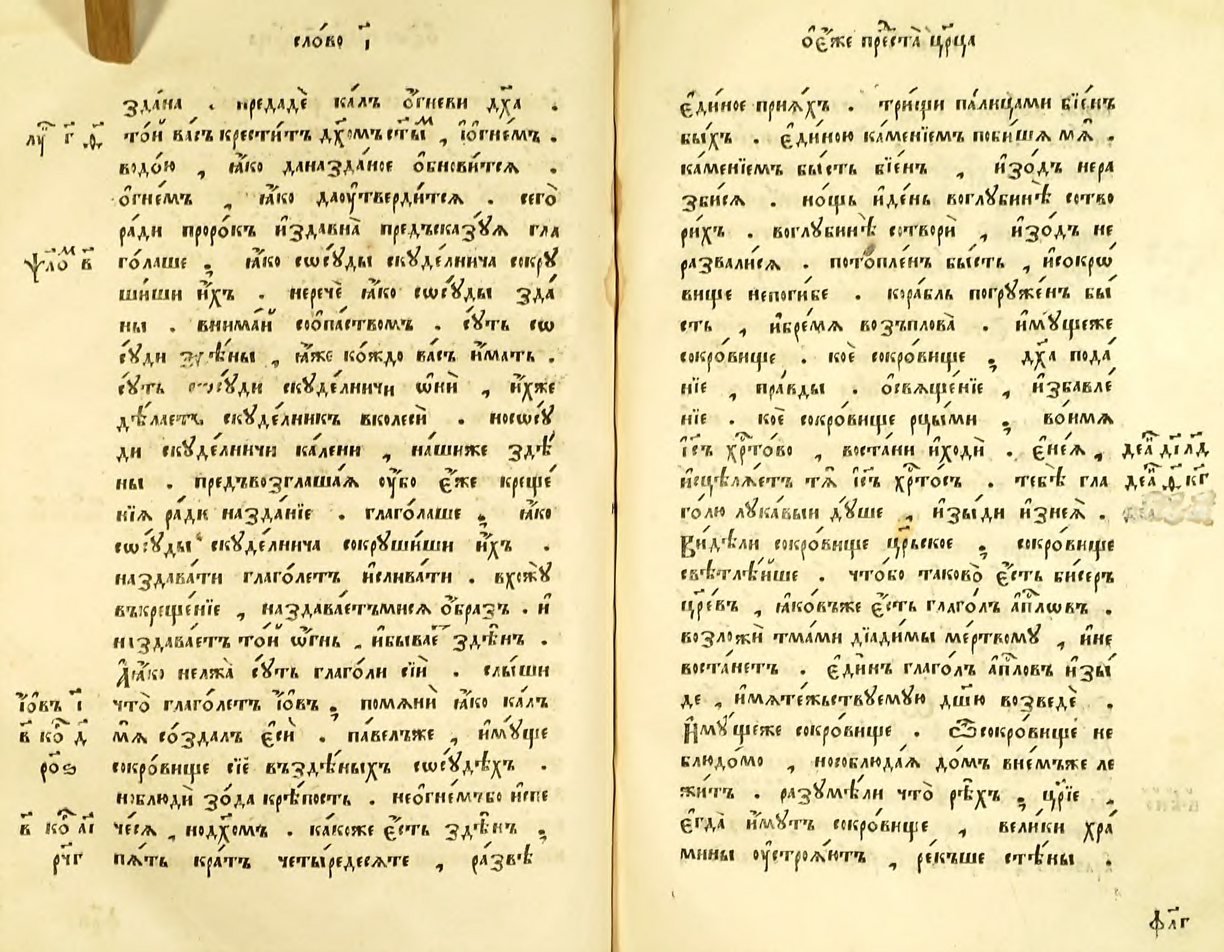 сло́во і҃
зда́на . предадѐ ка́лъ ѻ҆́гневи дх҃а .
лꙋⷦ҇ г҃ .ѳ҃. то́й ва́съ крести́тъ дх҃омъ ст҃ы́мъ , і҆о҆гне́мъ .
водо́ю , ꙗ҆́ко даназда́ное ѻ҆бнови́тсѧ .
ѻ҆гне́мъ , ꙗ҆́ко даоу҆тверди́тсѧ . сего̀
ра́ди проро́къ и҆здавна̀ предъска́зꙋѧ гла
ѱало́мъ в҃ го́лаше , ꙗ҆́ко сѡсꙋ́ды скꙋде́лнича сокрꙋ
ши́ши и҆̀хъ . нерече̑ ꙗ҆́ко сѡсꙋ́ды зда́
ны . внима́й соопа́ствомъ . сꙋ́ть сѡ
сꙋ́ди здѣ́ны , ꙗ҆́же ко́ждо ва́съ и҆́мать .
сꙋ́ть сѡсꙋ́ди скꙋде́лничи ѡ҆нѝ , и҆́хже
дѣ́лаетъ скꙋде́лникъ вколесѝ . носѡсꙋ́
ди скꙋде́лничи ка́лени , на́шиже здѣ́
ны . предъвозглаша́ѧ оу҆́бо є҆́же креще́
нїѧ ра́ди назда́нїе . глаго́лаше , ꙗ҆́ко
сѡсꙋ́ды скꙋде́лнича сокрꙋши́ши и҆̀хъ .
наздава́ти глаго́летъ и҆слива́ти . вхожꙋ̀
въкреще́нїе , наздава́етъмисѧ ѻ҆́бразъ . и҆
наздава́етъ то́й ѻ҆́гнь , и҆быва́етъ здѣ́нъ .
А҆ꙗ҆́ко нелжа̀ сꙋ́ть глаго́ли сїѝ . слы́ши
і҆́ѡвъ і҃ что̀ глаго́летъ і҆́ѡвъ , помѧнѝ ꙗ҆́ко ка́лъ
в҃ коⷬ҇ д҃ мѧ̀ со́здалъ є҆сѝ . па́велъже , и҆мꙋ́ще
рѻ҃ѕ сокро́вище сїѐ въздѣ́ныхъ сѡсꙋ́дѣхъ .
наблюдѝ зо́да крѣ́пость . неогне́мъбо и҆спе
в҃ коⷬ҇ аі҃ че́сѧ , нодх҃омъ . ка́коже є҆́сть здѣ́нъ ,
рч҃г пѧ́ть кра́тъ четы́редесѧте , ра́звѣ
ѻ҆є҆́же прⷭ҇та̀ цр҃ца
є҆ди́ное прїѧ́хъ . три́щи па́лицами бїе́нъ
бы́хъ . є҆ди́ною ка́менїемъ поби́шѧ мѧ̀ .
ка́менїемъ бы́сть бїе́нъ , и҆зо́дъ нера
зби́сѧ . но́щь и҆де́нь воглꙋбинѣ̀ сотво
ри́хъ . воглꙋбинѣ̀ сотворѝ , и҆зо́дъ не
развали́сѧ . потопле́нъ бы́сть , и҆сокрѡ́
вище непоги́бе . кора́бль погрꙋже́нъ бы́
сть , и҆бре́мѧ возъплова̀ . и҆мꙋ́щеже
сокро́вище . коѐ сокро́вище , дх҃а пода́
нїе , пра́вды . ѻ҆свѧще́нїе , и҆збавле́
нїе . коѐ сокро́вище рцы́ми , во́имѧ
і҆с҃ъ хрⷭ҇то́во , воста́ни и҆ходѝ . є҆не́ѧ , дѣѧ́ д҃і л҃д
и҆сцѣлѧ́етъ тѧ̀ і҆с҃ъ хрⷭ҇то́съ . тебѣ̀ гла дѣѧ́ .ѳ҃. к҃г
го́лю лꙋка́выи дꙋ́ше , и҆зы́ди и҆знеѧ̀ .
Ви́дѣли сокро́вище цр҃ьское , сокро́вище
свѣтлѣ́йше . что́бо таково̀ є҆́сть би́серъ
цр҃евъ , ꙗ҆ко́въже є҆́сть глаго́лъ а҆пⷭ҇ловъ .
возложѝ тма́ми дїади́мы ме́ртвомꙋ , и҆не
воста́нетъ . є҆ди́нъ глаго́лъ а҆пⷭ҇ловъ и҆зы́
де , и҆мѧте́жьствꙋемꙋю дш҃ю возведѐ .
И҆мꙋ́щеже сокро́вище . Ѿсокро́вище не
блюдо́мо , нособлюда́ѧ до́мъ вне́мъже ле
жи́тъ . разꙋмѣ́ли что̀ рѣ́хъ , цр҃їе ,
є҆гда̀ и҆́мꙋтъ сокро́вище , вели́ки хра́
мины оу҆строѧ́ютъ , ре́къше стѣ́ны .
ф҃лг